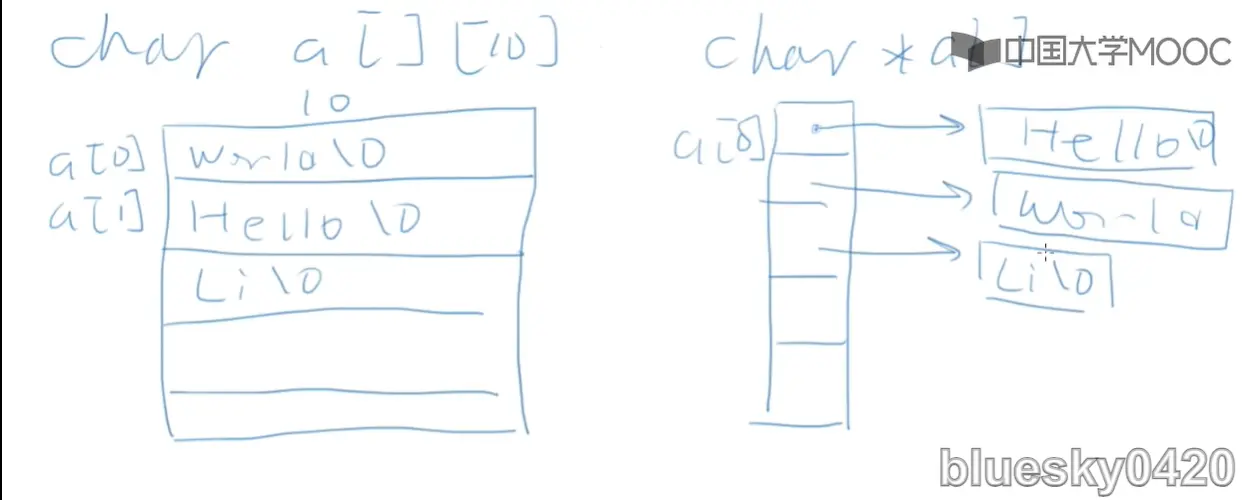 char a[][10]
10
a[0] World\0
a[1] Hello\0
Li\0
char *a[]
中国大学MOOC
a[0] Hello\0
World
Li\0
bluesky0420